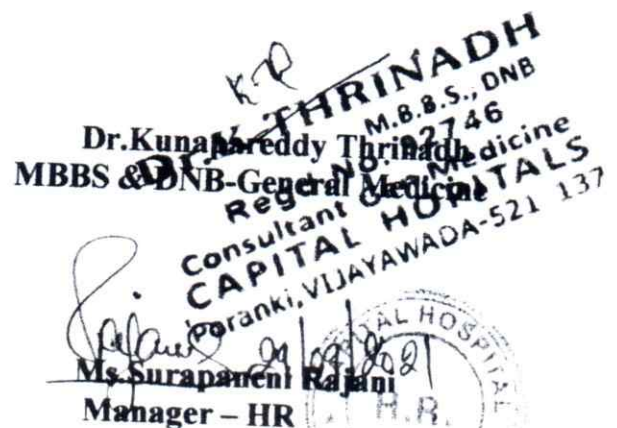 Dr.Kunapareddy Thrinadh
MBBS & DNB-General Medicine
THRINADH
M.B.B.S., DNB
Consultant Medicine
CAPITAL HOPITALS
Poranki, VIJAYAWADA-521 137
Ms.Surapaneni Rajani
Manager – HR
HOSPITAL
H.R.